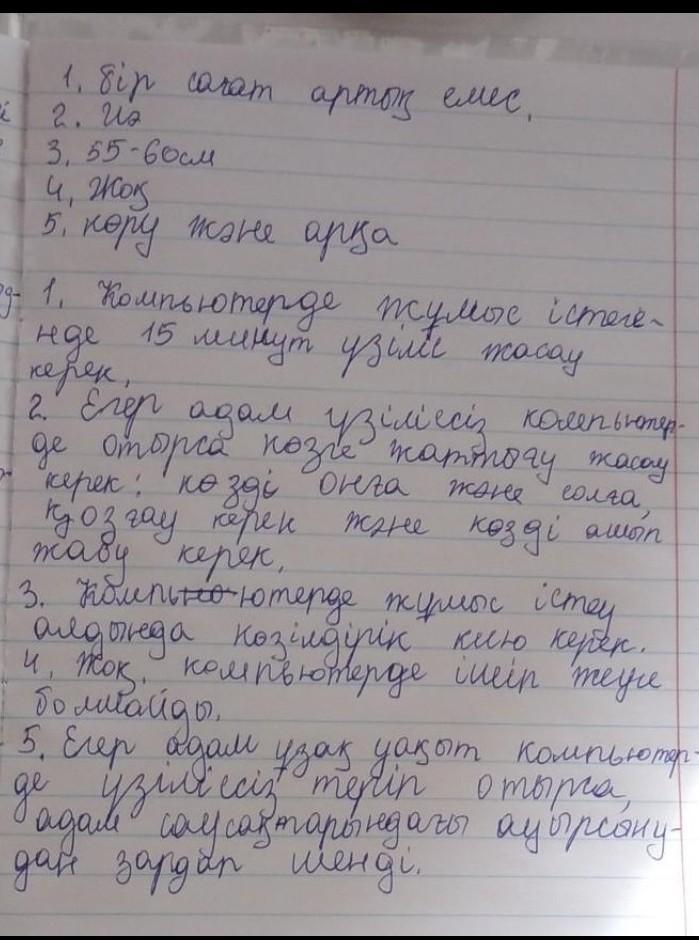 1. бір сағат артық емес.
2. Иә
3. 55-60см
4. Жоқ
5. көру және арқа
1. Компьютерде жұмыс істеге-
нде 15 минут үзіліс жасау
керек.
2. Егер адам үзіліссіз компьютер-
де отырса көзге жаттығу жасау
керек: көзді оңға және солға,
қозғау керек және көзді ашып
жабу керек.
3. Компьютерде жұмыс істеу
алдында көзілдірік кию керек.
4. Жоқ, компьютерде ішіп жеуге
болмайды.
5. Егер адам ұзақ уақыт компьютер-
де үзіліссіз теріп отырса,
адам саусақтарындағы ауырсыну-
дан зардап шекді.